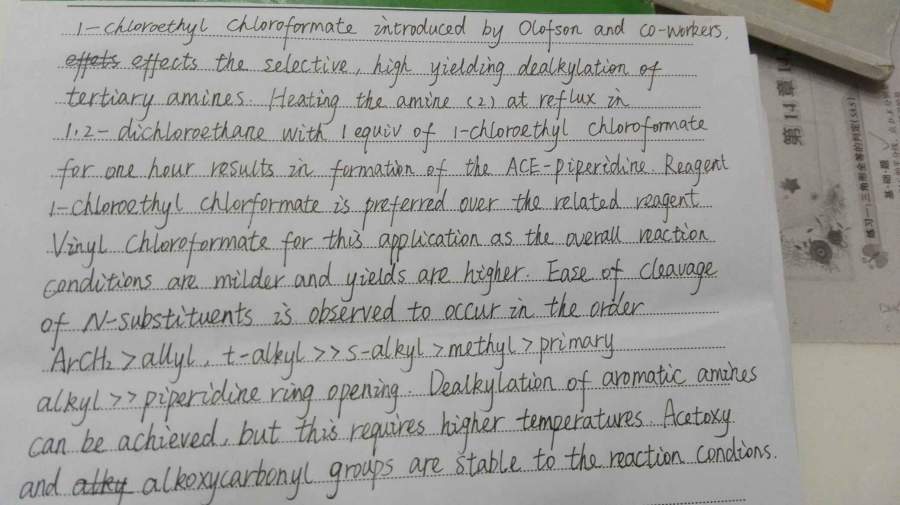 1-chloroethyl chloroformate introduced by Olofson and co-workers,
effets effects the selective, high yielding dealkylation of
tertiary amines. Heating the amine (2) at reflux in
1,2-dichloroethane with 1 equiv of 1-chloroethyl chloroformate
for one hour results in formation of the ACE-piperidine. Reagent
1-chloroethyl chlorformate is preferred over the related reagent
Vinyl chloroformate for this application as the overall reaction
conditions are milder and yields are higher. Ease of cleavage
of N-substituents is observed to occur in the order
ArCH₂ > allyl, t-alkyl >> s-alkyl > methyl > primary
alkyl >> piperidine ring opening. Dealkylation of aromatic amines
can be achieved, but this requires higher temperatures. Acetoxy
and alky alkoxycarbonyl groups are stable to the reaction condions.
第14章
练习一:三角形全等的判定(SAS)
基·础·题